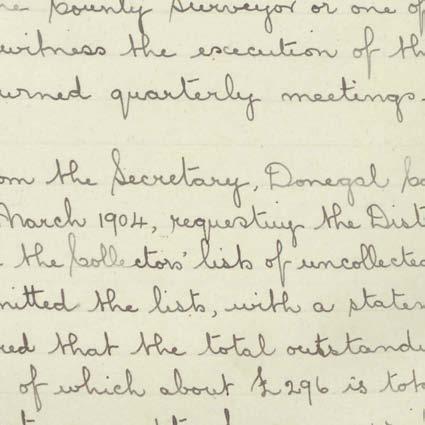 he County Surveyor or one of
witness the execution of th
urned quarterly meetings.
om the Secretary, Donegal Co
March 1904, requesting the Dist
the Collectors' lists of uncollected
mitted the lists, with a statem
red that the total outstandi
of which about £296 is tota